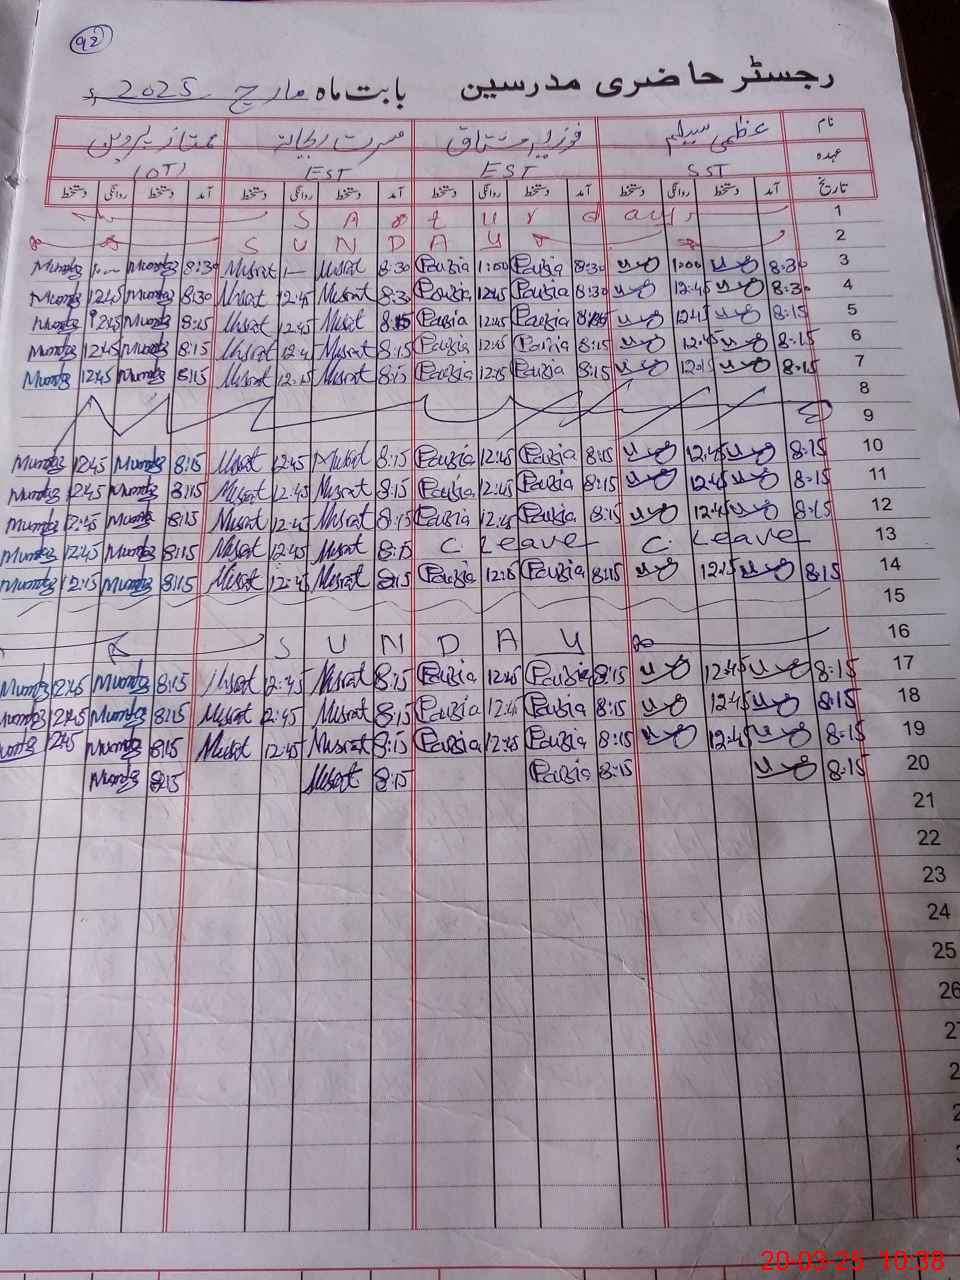 92
رجسٹر حاضری مدرسین بابت ماہ مارچ 2025ء
نام عظمیٰ سلیم فوزیہ مشتاق مسرت ریحانہ ممتاز پروین
عہدہ SST EST EST (OT)
تاریخ آمد دستخط روانگی دستخط آمد دستخط روانگی دستخط آمد دستخط روانگی دستخط آمد دستخط روانگی دستخط
SAturday 1
SUNDAY 2
Mumtaz 1— Mumtaz 8:30 Musrat 1— Musrat 8:30 Fouzia 1:00 Fouzia 8:30 1:00 8:30 3
Mumtaz 12:45 Mumtaz 8:30 Musrat 12:45 Musrat 8:30 Fouzia 12:45 Fouzia 8:30 12:45 8:30 4
Mumtaz 12:45 Mumtaz 8:15 Musrat 12:45 Musrat 8:15 Fouzia 12:45 Fouzia 8:15 12:45 8:15 5
Mumtaz 12:45 Mumtaz 8:15 Musrat 12:45 Musrat 8:15 Fouzia 12:45 Fouzia 8:15 12:45 8:15 6
Mumtaz 12:45 Mumtaz 8:15 Musrat 12:15 Musrat 8:15 Fouzia 12:15 Fouzia 8:15 12:15 8:15 7
8
9
Mumtaz 12:45 Mumtaz 8:15 Musrat 12:45 Musrat 8:15 Fouzia 12:45 Fouzia 8:15 12:45 8:15 10
Mumtaz 12:45 Mumtaz 8:15 Musrat 12:45 Musrat 8:15 Fouzia 12:45 Fouzia 8:15 12:45 8:15 11
Mumtaz 12:45 Mumtaz 8:15 Musrat 12:45 Musrat 8:15 Fouzia 12:45 Fouzia 8:15 12:45 8:15 12
Mumtaz 12:45 Mumtaz 8:15 Musrat 12:45 Musrat 8:15 C. Leave C. Leave 13
Mumtaz 12:15 Mumtaz 8:15 Musrat 12:45 Musrat 8:15 Fouzia 12:15 Fouzia 8:15 12:15 8:15 14
15
SUNDAY 16
Mumtaz 12:45 Mumtaz 8:15 Musrat 12:45 Musrat 8:15 Fouzia 12:45 Fouzia 8:15 12:45 8:15 17
Mumtaz 12:45 Mumtaz 8:15 Musrat 12:45 Musrat 8:15 Fouzia 12:45 Fouzia 8:15 12:45 8:15 18
Mumtaz 12:45 Mumtaz 8:15 Musrat 12:45 Musrat 8:15 Fouzia 12:45 Fouzia 8:15 12:45 8:15 19
Mumtaz 8:15 Musrat 8:15 Fouzia 8:15 8:15 20
21
22
23
24
25
26
20-03-25 10:38